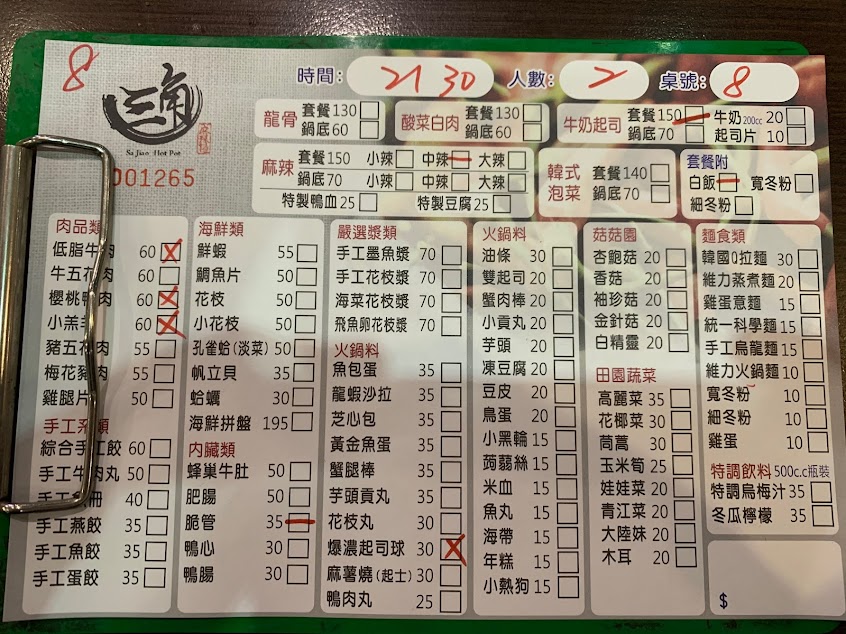 8
三角
麻辣鍋
Sa Jiao Hot Pot
001265
時間: 21 30 人數: 2 桌號: 8
龍骨 套餐130 鍋底60
酸菜白肉 套餐130 鍋底60
牛奶起司 套餐150 鍋底70 牛奶200cc 20 起司片 10
麻辣 套餐150 小辣 中辣 大辣
鍋底70 小辣 中辣 大辣
特製鴨血25 特製豆腐25
韓式泡菜 套餐140 鍋底70
套餐附
白飯 寬冬粉
細冬粉
肉品類
低脂牛肉 60
牛五花肉 60
櫻桃鴨肉 60
小羔羊 60
豬五花肉 55
梅花豬肉 55
雞腿片 50
手工系類
綜合手工餃 60
手工牛肉丸 50
手工 冊 40
手工燕餃 35
手工魚餃 35
手工蛋餃 35
海鮮類
鮮蝦 55
鯛魚片 50
花枝 50
小花枝 50
孔雀蛤(淡菜) 50
帆立貝 35
蛤蠣 30
海鮮拼盤 195
內臟類
蜂巢牛肚 50
肥腸 50
脆管 35
鴨心 30
鴨腸 30
嚴選漿類
手工墨魚漿 70
手工花枝漿 70
海菜花枝漿 70
飛魚卵花枝漿 70
火鍋料
魚包蛋 35
龍蝦沙拉 35
芝心包 35
黃金魚蛋 35
蟹腿棒 35
芋頭貢丸 35
花枝丸 30
爆濃起司球 30
麻薯燒(起士) 30
鴨肉丸 25
火鍋料
油條 30
雙起司 20
蟹肉棒 20
小貢丸 20
芋頭 20
凍豆腐 20
豆皮 20
鳥蛋 20
小黑輪 15
蒟蒻絲 15
米血 15
魚丸 15
海帶 15
年糕 15
小熱狗 15
菇菇園
杏鮑菇 20
香菇 20
袖珍菇 20
金針菇 20
白精靈 20
田園蔬菜
高麗菜 35
花椰菜 30
茼蒿 30
玉米筍 25
娃娃菜 20
青江菜 20
大陸妹 20
木耳 20
麵食類
韓國Q拉麵 30
維力蒸煮麵 20
雞蛋意麵 15
統一科學麵 15
手工烏龍麵 15
維力火鍋麵 10
寬冬粉 10
細冬粉 10
雞蛋 10
特調飲料 500c.c瓶裝
特調烏梅汁 35
冬瓜檸檬 35
$